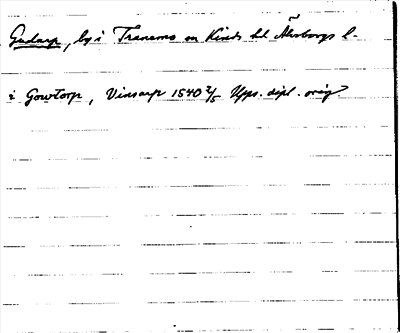 Gudarp, by i Tranemo sn Kinds hd Älvsborgs l.
i Gowtorp, Vinsarp 1540 2/5 Upps. dipl. orig.